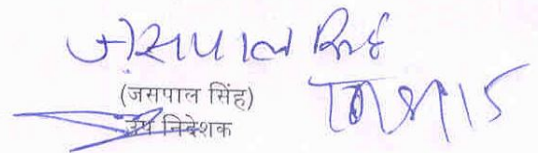 जसपाल सिंह
(जसपाल सिंह)
उप निदेशक